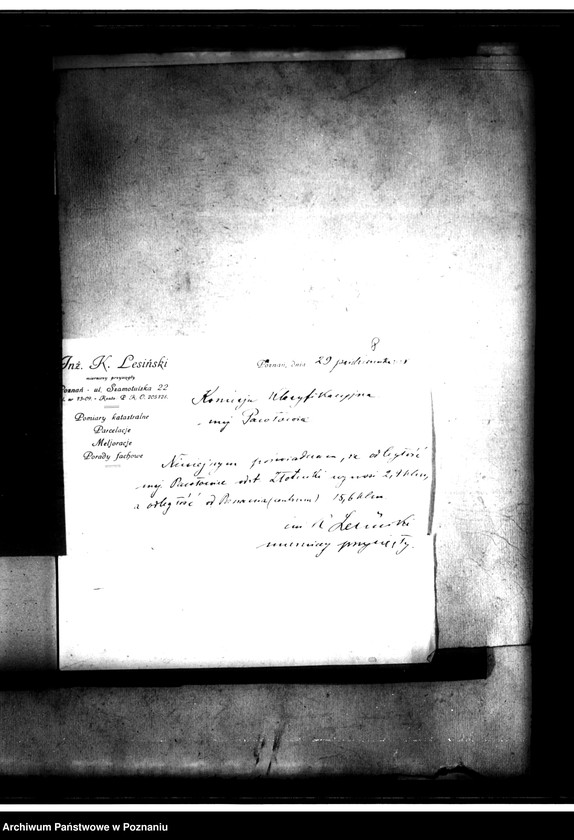 8
Inż. K. Lesiński
mierniczy przysięgły
Poznań - ul. Szamotulska 22
Pomiary katastralne
Parcelacje
Meljoracje
Porady fachowe
Poznań, dnia 29 października
Komisja Klasyfikacyjna
maj
Niniejszym poświadczam, że odległość
maj Złotniki wynosi 2,4 klm,
a odległość od Poznania (centrum) 15,6 klm
inż K Lesiński
mierniczy przysięgły.
Archiwum Państwowe w Poznaniu